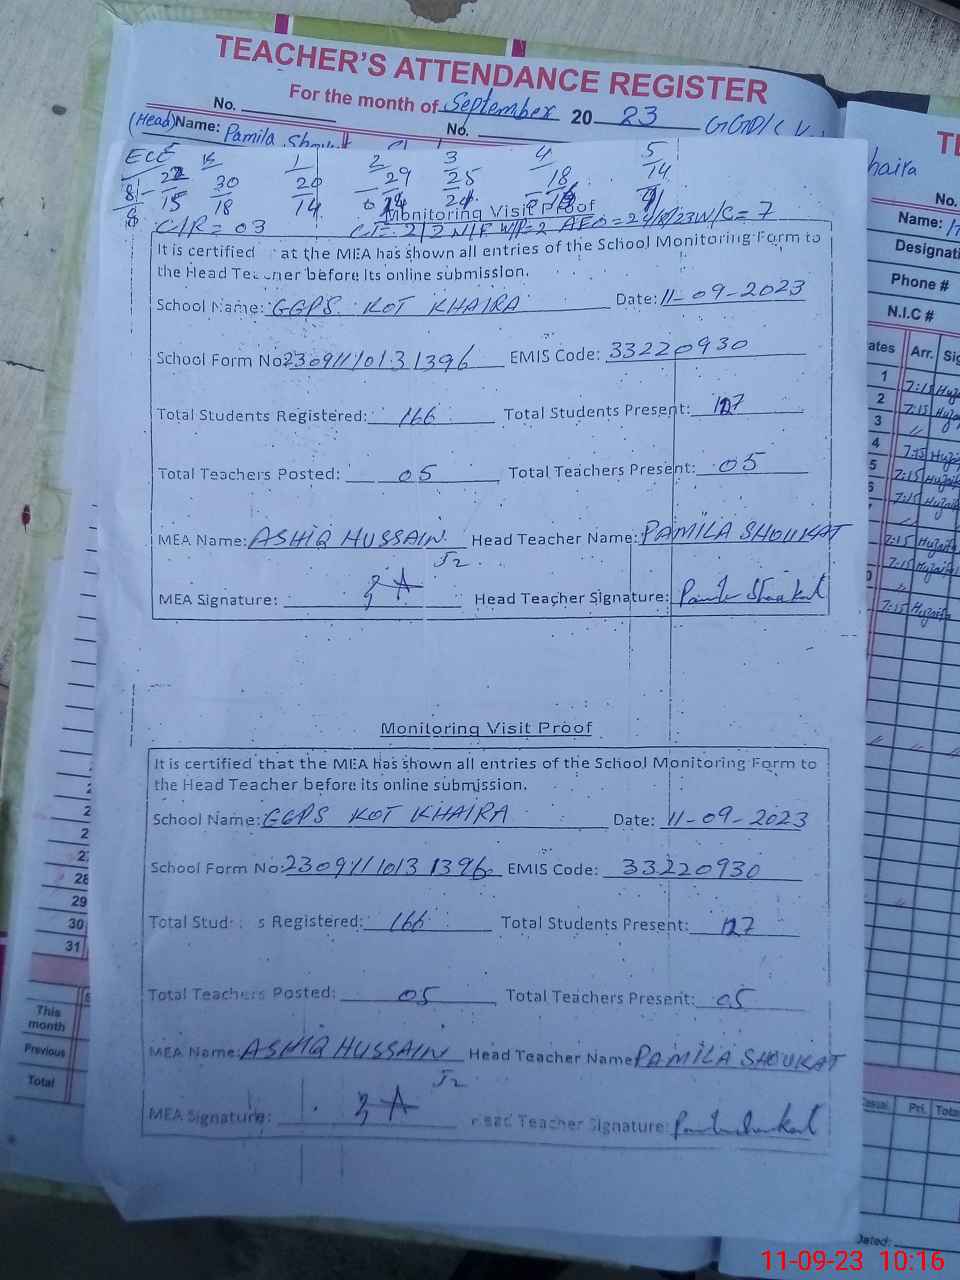 TEACHER'S ATTENDANCE REGISTER
For the month of September 20 23
No. No.
(Head) Name: Pamila
ECE 1 2 3 4 5
30 20 29 25 18 14
15 18 14
C/R = 03
Monitoring Visit Proof
It is certified at the MEA has shown all entries of the School Monitoring Form to
the Head before its online submission.
School Name: GGPS KOT KHAIRA Date: 11-09-2023
School Form No: 2309111013 1396 EMIS Code: 33220930
Total Students Registered: 166 Total Students Present: 127
Total Teachers Posted: 05 Total Teachers Present: 05
MEA Name: ASHIQ HUSSAIN Head Teacher Name: PAMILA SHOUKAT
MEA Signature: Head Teacher Signature:
Monitoring Visit Proof
It is certified that the MEA has shown all entries of the School Monitoring Form to
the Head Teacher before its online submission.
School Name: GGPS KOT KHAIRA Date: 11-09-2023
School Form No: 2309111013 1396 EMIS Code: 33220930
Total s Registered: 166 Total Students Present: 127
Total Teachers Posted: 05 Total Teachers Present: 05
MEA Name: ASHIQ HUSSAIN Head Teacher Name PAMILA SHOUKAT
MEA Signature: Teacher Signature:
28
29
30
31
This
month
Previous
Total
haira
No.
Name:
Phone #
N.I.C #
Arr.
1 7:15
2 7:15
3
4 7:15
5 7:15
7:15
7:15
7:15
7:15
Pri.
11-09-23 10:16